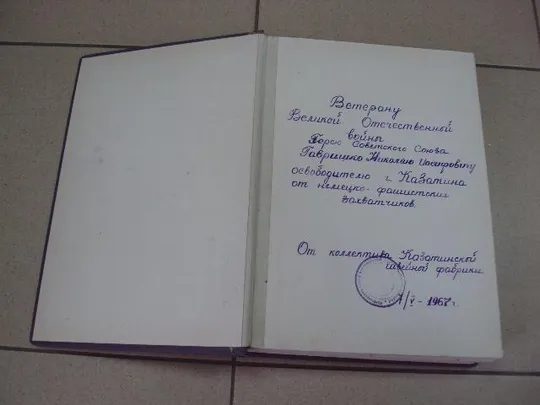 Ветерану
Великой Отечественной
войны
Герою Советского Союза
Гавришко Николаю
освободителю г. Казатина
от немецко-фашистских
захватчиков.
От коллектива Казатинской
швейной фабрики.
1967 г.